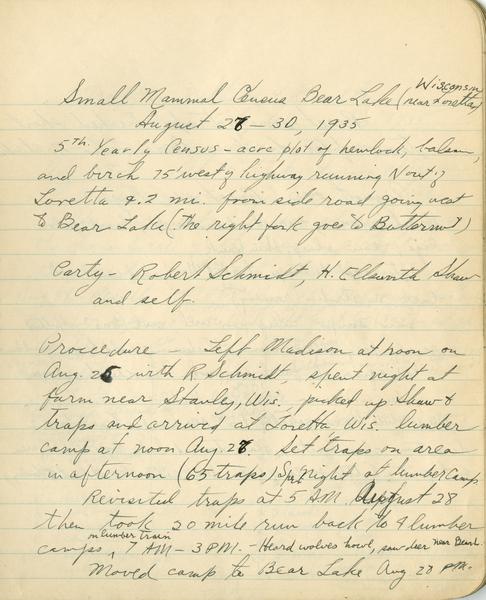 Wisconsin
Small Mammal Census Bear Lake (near Loretta)
August 27 – 30, 1935
5th Yearly Census – acre plot of hemlock, balsam,
and birch 75' west of highway running North of
Loretta & 2 mi. from side road going west
to Bear Lake (The right fork goes to Butternut)
Party – Robert Schmidt, H. Ellsworth Shaw
and self.
Procedure – Left Madison at noon on
Aug. 26 with R Schmidt, spent night at
farm near Stanley, Wis. picked up Shaw &
traps and arrived at Loretta Wis. lumber
camp at noon Aug. 27. Set traps on area
in afternoon (65 traps) Spent Night at lumber camp
Revisited traps at 5 AM. August 28
then took 20 mile run back to 4 lumber
on lumber train
camps, 7 AM – 3 PM. – Heard wolves howl, saw deer near
Moved camp to Bear Lake Aug 28 PM.